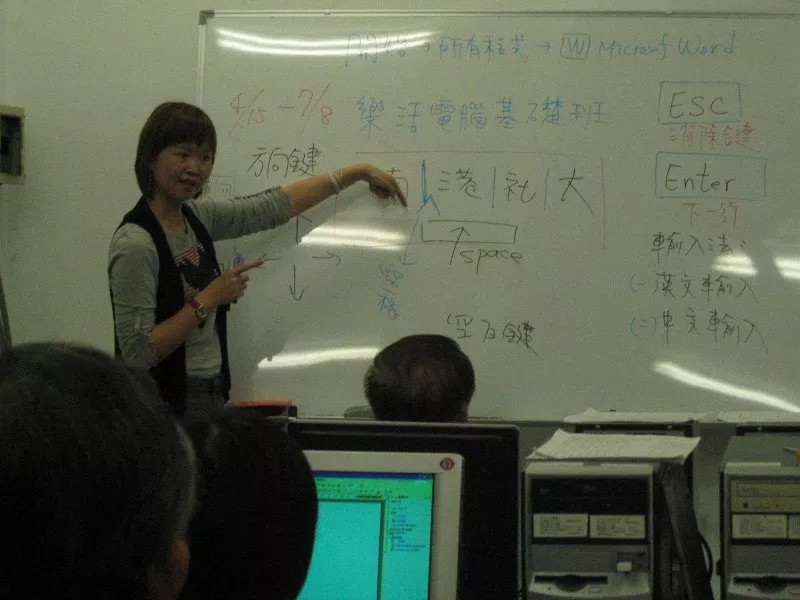 開始→所有程式→W Microsoft Word
4/15-7/8 樂活電腦基礎班
ESC
解除鍵
方向鍵
南港社大
Enter
下一行
space
空格
輸入法:
(一)英文輸入
(二)中文輸入
空白鍵